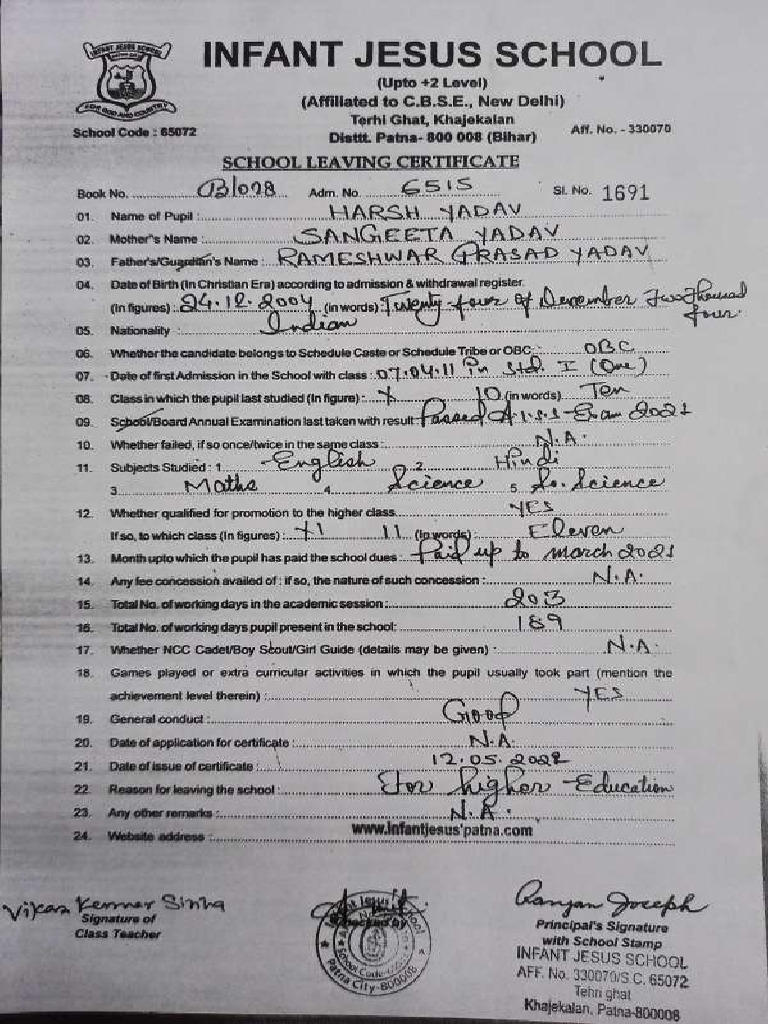 INFANT JESUS SCHOOL
(Upto +2 Level)
(Affiliated to C.B.S.E., New Delhi)
Terhi Ghat, Khajekalan
School Code : 65072
Disttt. Patna- 800 008 (Bihar)
Aff. No. - 330070
SCHOOL LEAVING CERTIFICATE
Book No. B/078 Adm. No. 6515 Sl. No. 1691
01. Name of Pupil : HARSH YADAV
02. Mother's Name : SANGEETA YADAV
03. Father's/Guardian's Name : RAMESHWAR PRASAD YADAV
04. Date of Birth (In Christian Era) according to admission & withdrawal register.
(In figures) : 24.12.2004 (in words) : Twenty-four of December Two Thousand
four.
05. Nationality : Indian
06. Whether the candidate belongs to Schedule Caste or Schedule Tribe or OBC : OBC
07. Date of first Admission in the School with class : 07.04.11 in Std. I (One)
08. Class in which the pupil last studied (In figure) : X 10 (in words) Ten
09. School/Board Annual Examination last taken with result : Passed A.I.S.S-Exam 2021
10. Whether failed, if so once/twice in the same class : N.A.
11. Subjects Studied : 1. English 2. Hindi
3. Maths 4. Science 5. So. Science
12. Whether qualified for promotion to the higher class YES
If so, to which class (In figures) : XI 11 (In words) : Eleven
13. Month upto which the pupil has paid the school dues : Paid up to march 2021
14. Any fee concession availed of : if so, the nature of such concession : N.A.
15. Total No. of working days in the academic session: 203
16. Total No. of working days pupil present in the school: 189
17. Whether NCC Cadet/Boy Scout/Girl Guide (details may be given) - N.A.
18. Games played or extra curricular activities in which the pupil usually took part (mention the
achievement level therein) : YES
19. General conduct : Good
20. Date of application for certificate : N.A.
21. Date of issue of certificate : 12.05.2022
22. Reason for leaving the school : For higher Education
23. Any other remarks : N.A.
24. Website address : www.infantjesus'patna.com
Vikas Kumar Sinha
Signature of
Class Teacher
Infant Jesus School
Patna City-800008
Ranjan Joseph
Principal's Signature
with School Stamp
INFANT JESUS SCHOOL
AFF. No. 330070/S.C. 65072
Tehri ghat
Khajekalan, Patna-800008